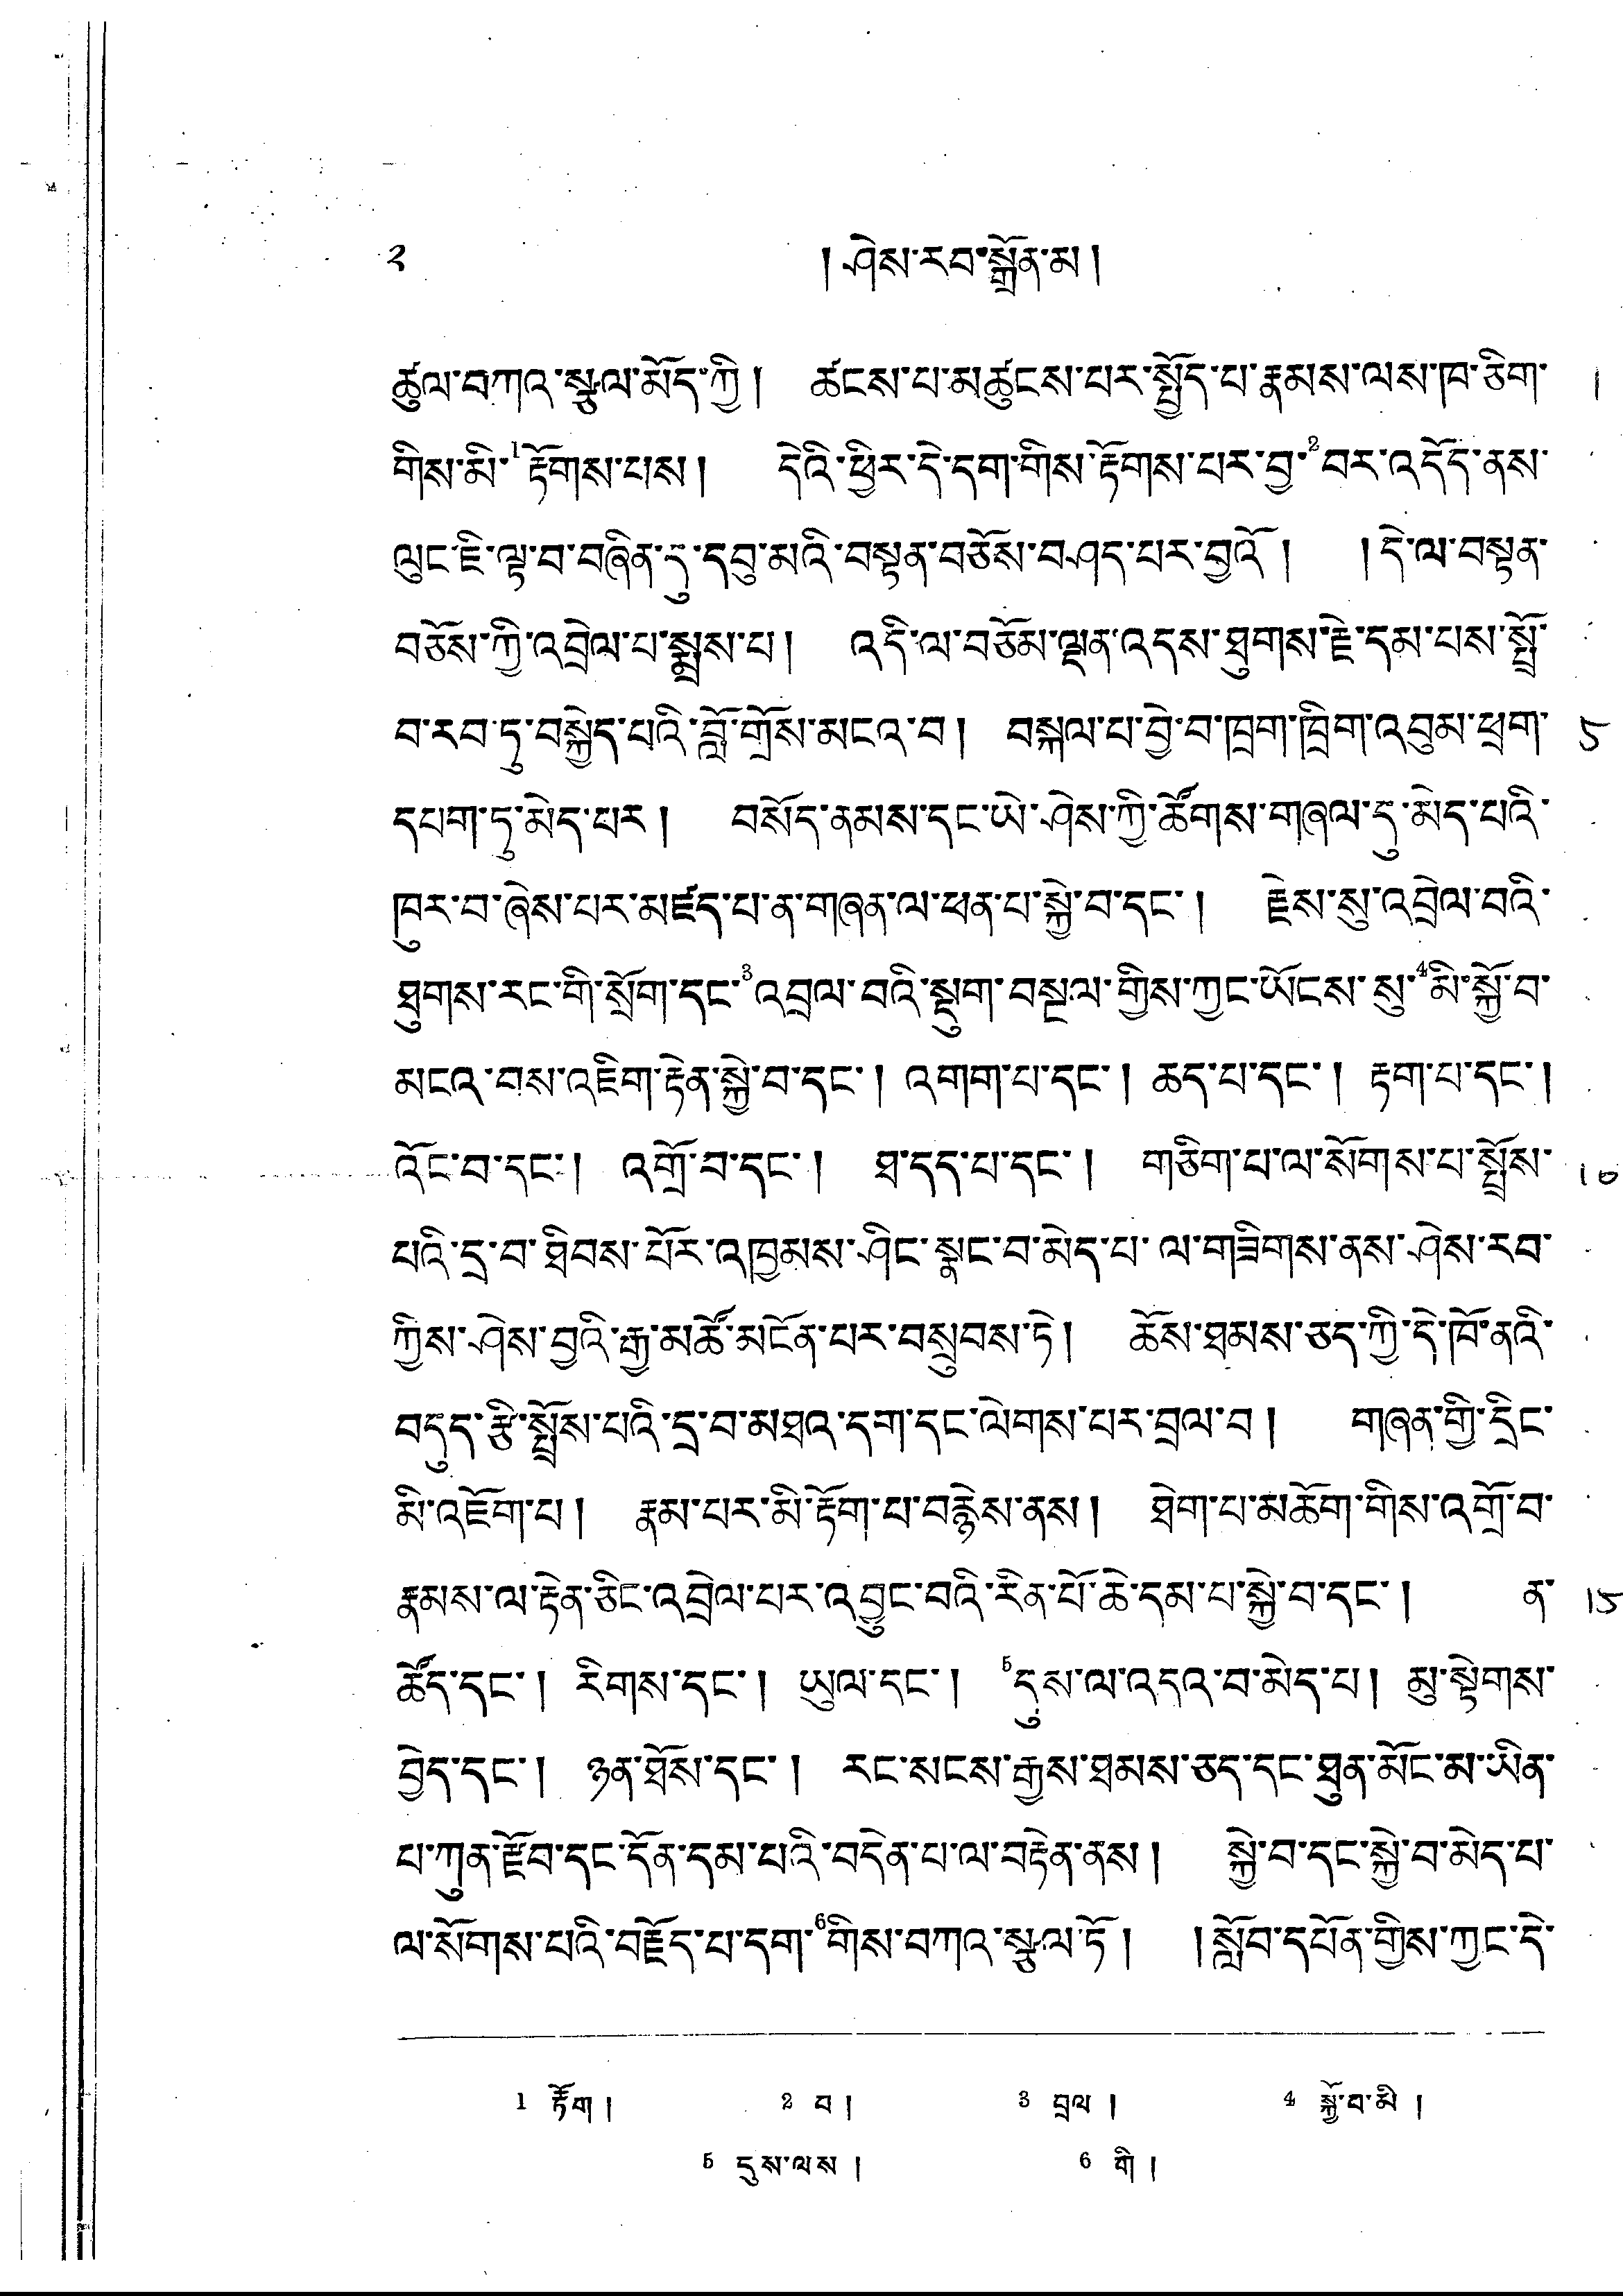 २ །ཤེས་རབ་སྒྲོན་མ།
ཚུལ་བཀའ་སྩལ་མོད་ཀྱི། ཚངས་པ་མཚུངས་པར་སྤྱོད་པ་རྣམས་ལས་ཁ་ཅིག་ ।
གིས་མི་¹རྟོགས་པས། དེའི་ཕྱིར་དེ་དག་གིས་རྟོགས་པར་བྱ་²བར་འདོད་ནས་
ལུང་ཇི་ལྟ་བ་བཞིན་དུ་དབུ་མའི་བསྟན་བཅོས་བཤད་པར་བྱའོ། །དེ་ལ་བསྟན་
བཅོས་ཀྱི་འབྲེལ་པ་སྨྲས་པ། འདི་ལ་བཅོམ་ལྡན་འདས་ཐུགས་རྗེ་དམ་པས་སྤྲོ་
བ་རབ་ཏུ་བསྐྱེད་པའི་བློ་གྲོས་མངའ་བ། བསྐལ་པ་བྱེ་བ་ཁྲག་ཁྲིག་འབུམ་ཕྲག་ ५
དཔག་ཏུ་མེད་པར། བསོད་ནམས་དང་ཡེ་ཤེས་ཀྱི་ཚོགས་གཞལ་དུ་མེད་པའི་
ཁུར་བ་ཞེས་པར་མཛད་པ་ན་གཞན་ལ་ཕན་པ་སྐྱེ་བ་དང་། རྗེས་སུ་འབྲེལ་བའི་
ཐུགས་རང་གི་སྲོག་དང་³འབྲལ་བའི་སྡུག་བསྔལ་གྱིས་ཀྱང་ཡོངས་སུ་⁴མི་སྐྱོ་བ་
མངའ་བས་འཇིག་རྟེན་སྐྱེ་བ་དང་། འགག་པ་དང་། ཆད་པ་དང་། རྟག་པ་དང་།
འོང་བ་དང་། འགྲོ་བ་དང་། ཐ་དད་པ་དང་། གཅིག་པ་ལ་སོགས་པ་སྤྲོས་ १०
པའི་དྲ་བ་ཐིབས་པོར་འཁྱམས་ཤིང་སྣང་བ་མེད་པ་ལ་གཟིགས་ནས་ཤེས་རབ་
ཀྱིས་ཤེས་བྱའི་རྒྱ་མཚོ་མངོན་པར་བསྲུབས་ཏེ། ཆོས་ཐམས་ཅད་ཀྱི་དེ་ཁོ་ནའི་
བདུད་རྩི་སྤྲོས་པའི་དྲ་བ་མཐའ་དག་དང་ལེགས་པར་བྲལ་བ། གཞན་གྱི་དྲིང་
མི་འཇོག་པ། རྣམ་པར་མི་རྟོག་པ་བརྙེས་ནས། ཐེག་པ་མཆོག་གིས་འགྲོ་བ་
རྣམས་ལ་རྟེན་ཅིང་འབྲེལ་པར་འབྱུང་བའི་རིན་པོ་ཆེ་དམ་པ་སྐྱེ་བ་དང་། ན་ १५
ཚོད་དང་། རིགས་དང་། ཡུལ་དང་། ⁵དུས་ལ་འདའ་བ་མེད་པ། མུ་སྟེགས་
བྱེད་དང་། ཉན་ཐོས་དང་། རང་སངས་རྒྱས་ཐམས་ཅད་དང་ཐུན་མོང་མ་ཡིན་
པ་ཀུན་རྫོབ་དང་དོན་དམ་པའི་བདེན་པ་ལ་བརྟེན་ནས། སྐྱེ་བ་དང་སྐྱེ་བ་མེད་པ་
ལ་སོགས་པའི་བརྗོད་པ་དག་⁶གིས་བཀའ་སྩལ་ཏོ། །སློབ་དཔོན་གྱིས་ཀྱང་དེ་
1 རྟོག། 2 བ། 3 བྲལ། 4 སྐྱོ་བ་མི།
5 དུས་ལས། 6 གི།